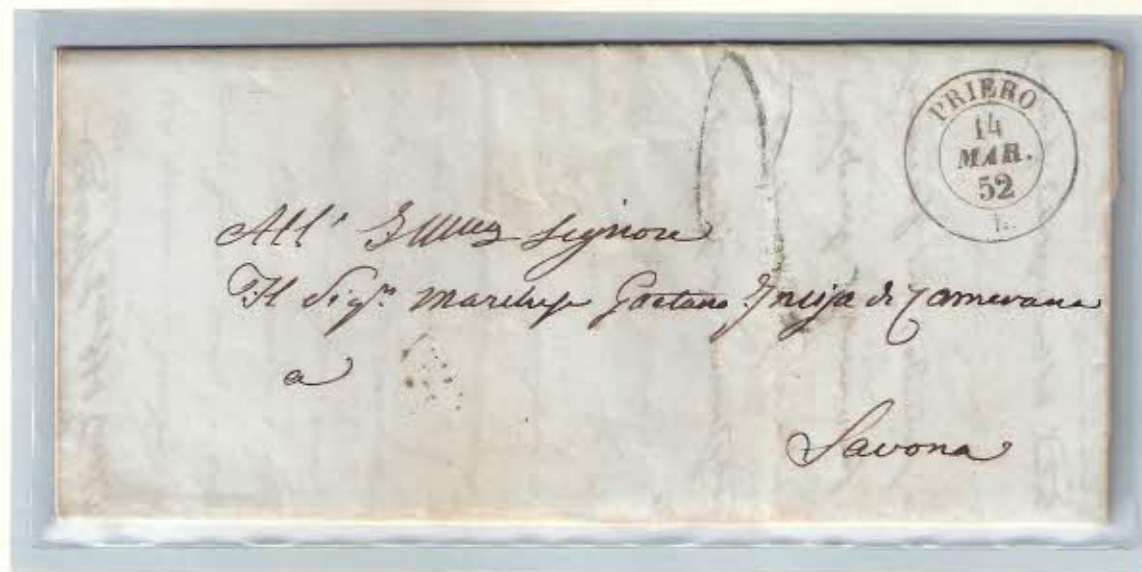 PRIERO
14
MAR.
52
All' Illmo Signore
Il Sigr. Marchese Gaetano Incisa di Camerana
a
Savona